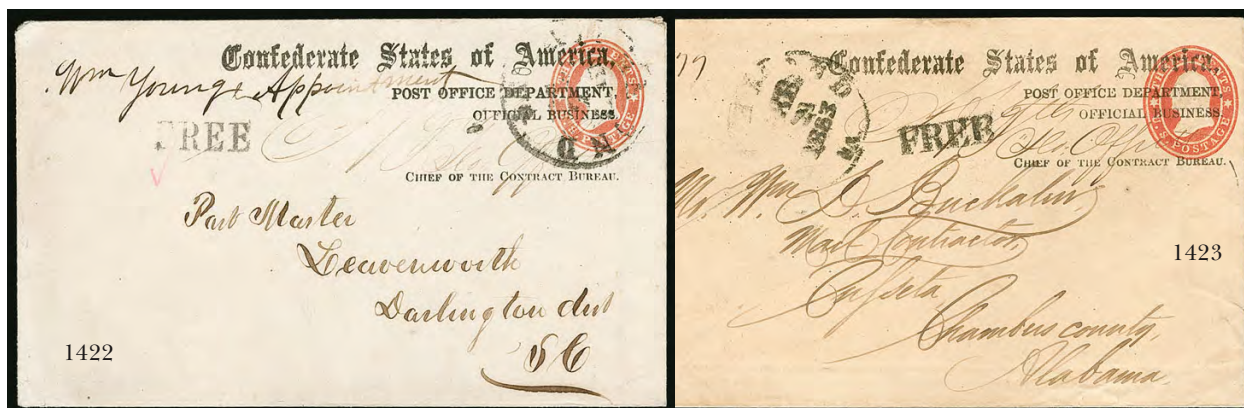 Confederate States of America,
Wm Youngs Appointment
POST OFFICE DEPARTMENT,
OFFICIAL BUSINESS.
FREE
CHIEF OF THE CONTRACT BUREAU.
Post Master
Leavenworth
Darlington dist
S C
1422
Confederate States of America,
POST OFFICE DEPARTMENT,
OFFICIAL BUSINESS.
U.S. POSTAGE
1863
FREE
CHIEF OF THE CONTRACT BUREAU.
Mr. Wm D. Buckalew
Mail Contractor,
Cusseta
Chambers county,
Alabama.
1423